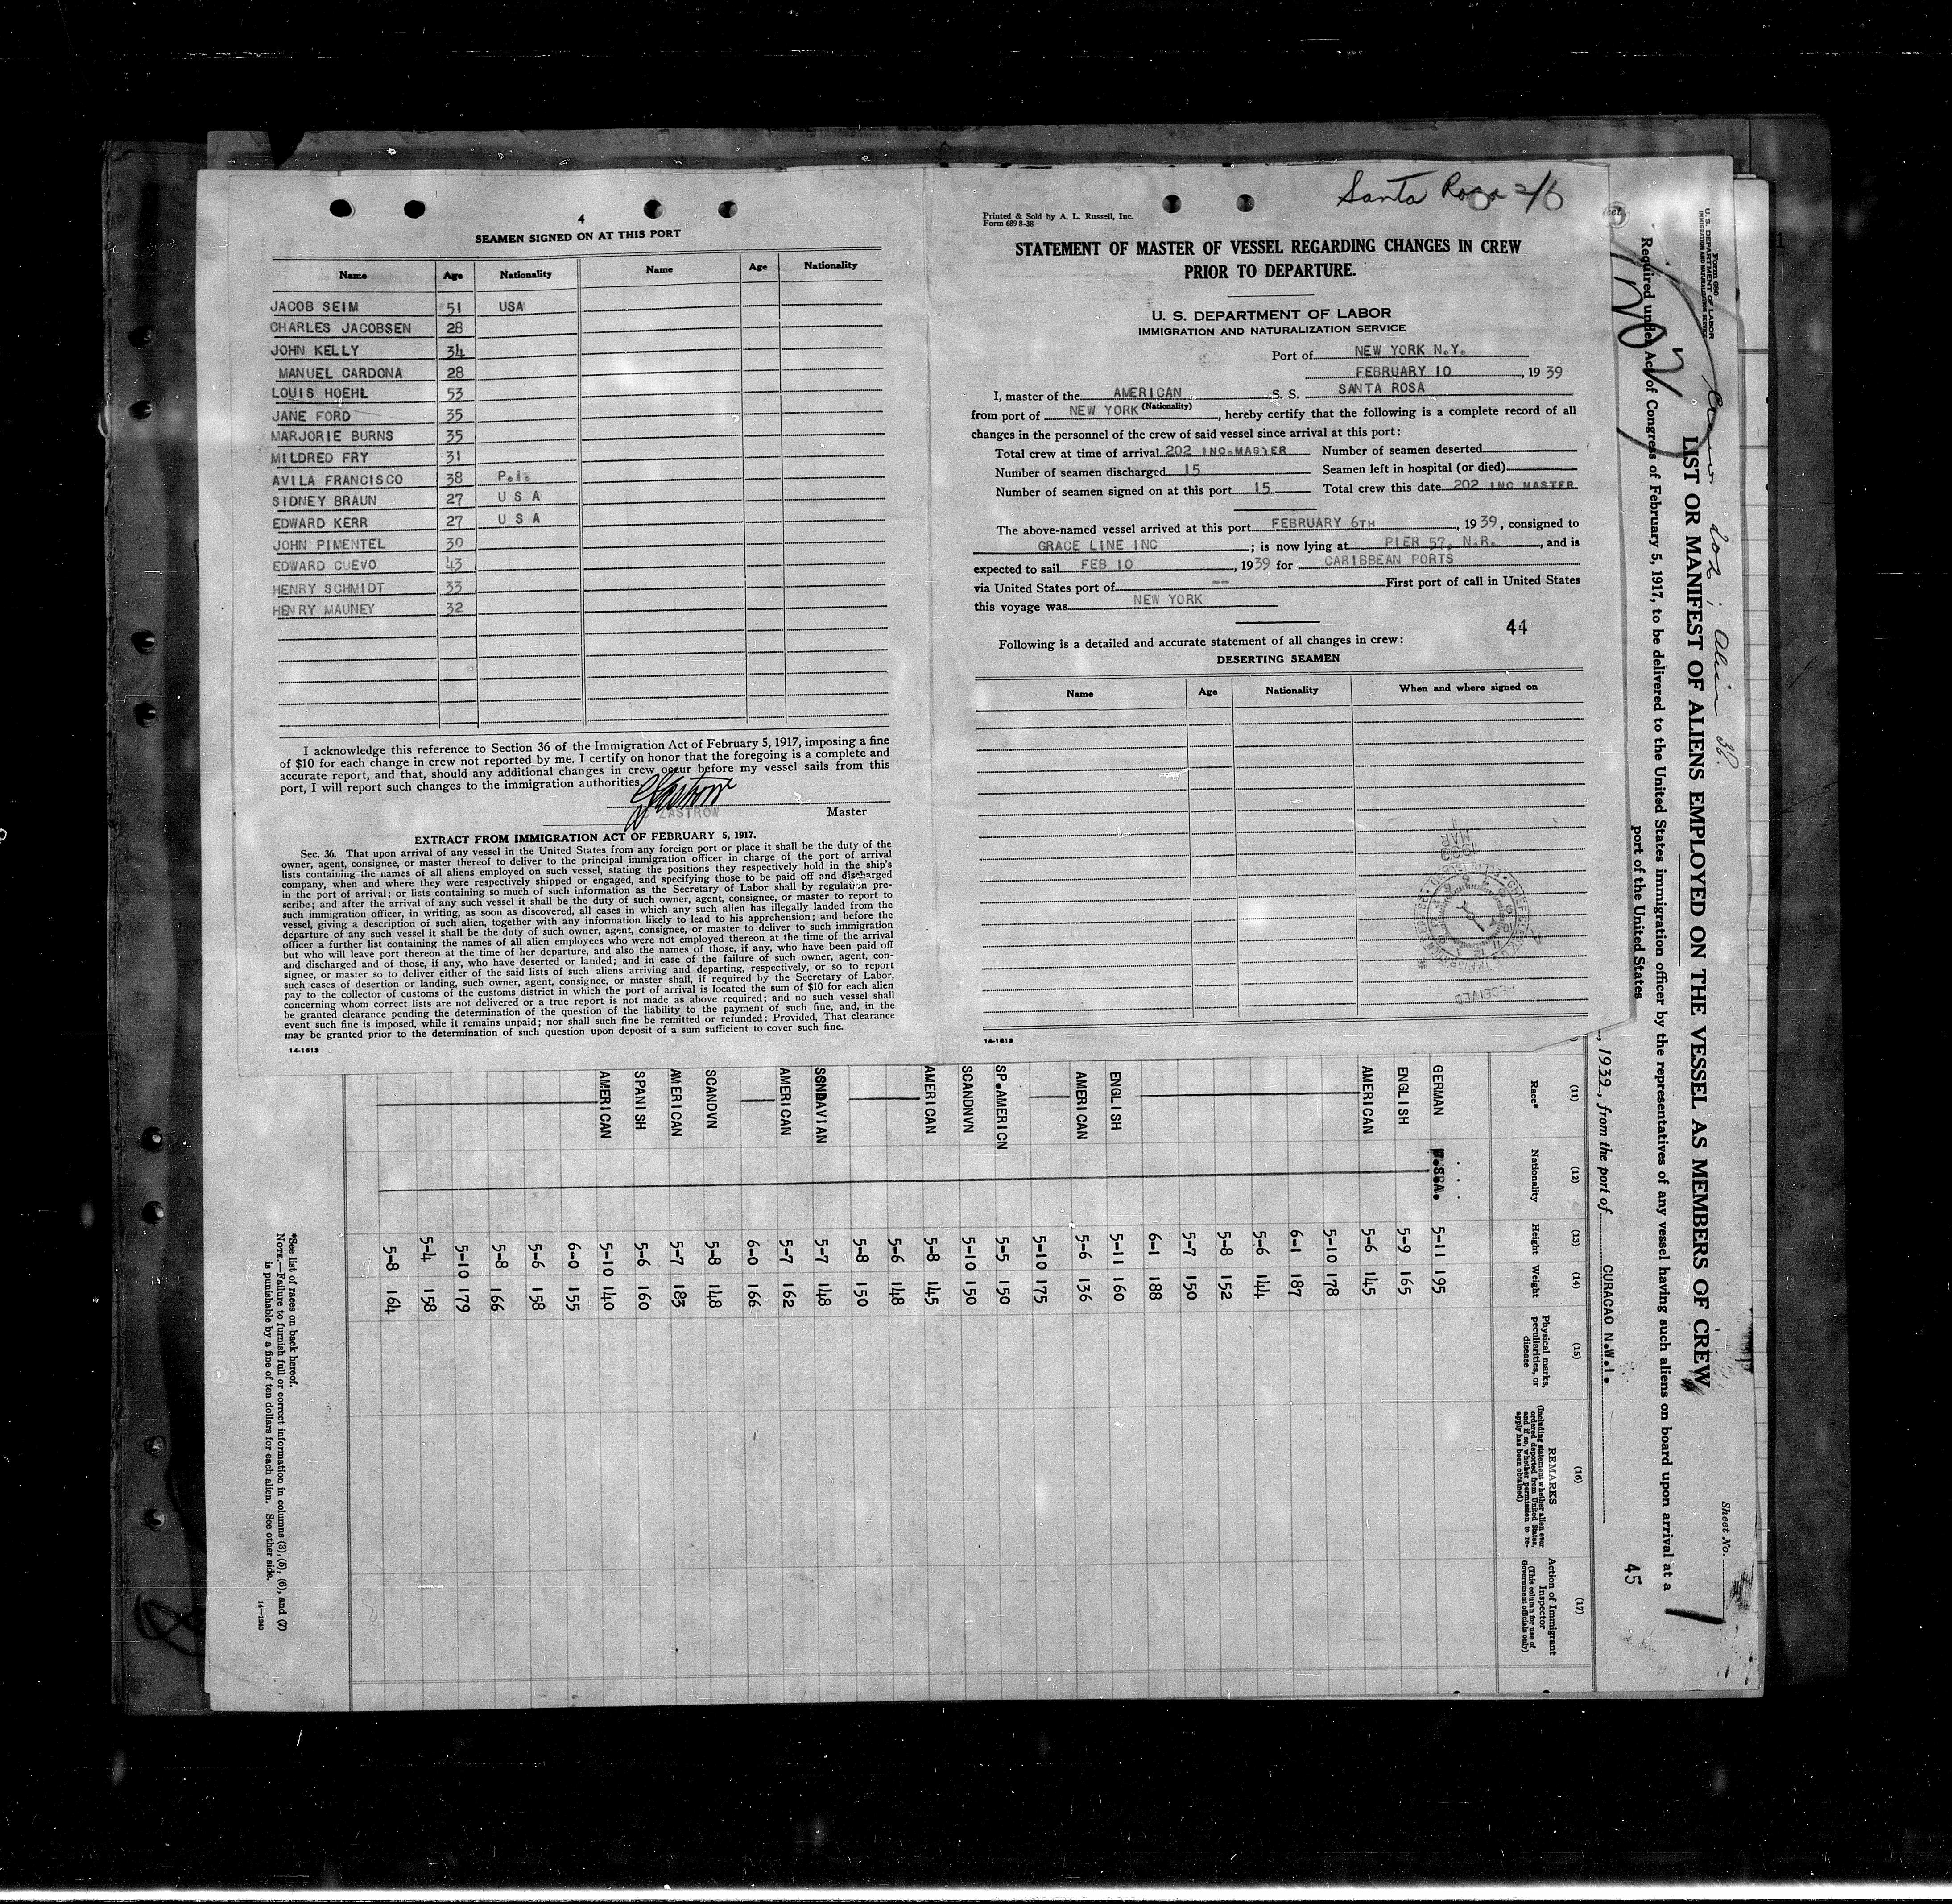 4
SEAMEN SIGNED ON AT THIS PORT
Name Age Nationality Name Age Nationality
JACOB SEIM 51 USA
CHARLES JACOBSEN 28
JOHN KELLY 34
MANUEL CARDONA 28
LOUIS HOEHL 53
JANE FORD 35
MARJORIE BURNS 35
MILDRED FRY 31
AVILA FRANCISCO 38 P.I.
SIDNEY BRAUN 27 U S A
EDWARD KERR 27 U S A
JOHN PIMENTEL 30
EDWARD CUEVO 43
HENRY SCHMIDT 33
HENRY MAUNEY 32
I acknowledge this reference to Section 36 of the Immigration Act of February 5, 1917, imposing a fine
of $10 for each change in crew not reported by me. I certify on honor that the foregoing is a complete and
accurate report, and that, should any additional changes in crew occur before my vessel sails from this
port, I will report such changes to the immigration authorities.
ZASTROW Master
EXTRACT FROM IMMIGRATION ACT OF FEBRUARY 5, 1917.
Sec. 36. That upon arrival of any vessel in the United States from any foreign port or place it shall be the duty of the
owner, agent, consignee, or master thereof to deliver to the principal immigration officer in charge of the port of arrival
lists containing the names of all aliens employed on such vessel, stating the positions they respectively hold in the ship's
company, when and where they were respectively shipped or engaged, and specifying those to be paid off and discharged
in the port of arrival; or lists containing so much of such information as the Secretary of Labor shall by regulation pre-
scribe; and after the arrival of any such vessel it shall be the duty of such owner, agent, consignee, or master to report to
such immigration officer, in writing, as soon as discovered, all cases in which any such alien has illegally landed from the
vessel, giving a description of such alien, together with any information likely to lead to his apprehension; and before the
departure of any such vessel it shall be the duty of such owner, agent, consignee, or master to deliver to such immigration
officer a further list containing the names of all alien employees who were not employed thereon at the time of the arrival
but who will leave port thereon at the time of her departure, and also the names of those, if any, who have been paid off
and discharged and of those, if any, who have deserted or landed; and in case of the failure of such owner, agent, con-
signee, or master so to deliver either of the said lists of such aliens arriving and departing, respectively, or so to report
such cases of desertion or landing, such owner, agent, consignee, or master shall, if required by the Secretary of Labor,
pay to the collector of customs of the customs district in which the port of arrival is located the sum of $10 for each alien
concerning whom correct lists are not delivered or a true report is not made as above required; and no such vessel shall
be granted clearance pending the determination of the question of the liability to the payment of such fine, and, in the
event such fine is imposed, while it remains unpaid; nor shall such fine be remitted or refunded: Provided, That clearance
may be granted prior to the determination of such question upon deposit of a sum sufficient to cover such fine.
14-1613
Santa Rosa 2/6
Printed & Sold by A. L. Russell, Inc.
Form 689 8-38
STATEMENT OF MASTER OF VESSEL REGARDING CHANGES IN CREW
PRIOR TO DEPARTURE.
U. S. DEPARTMENT OF LABOR
IMMIGRATION AND NATURALIZATION SERVICE
Port of NEW YORK N.Y.
FEBRUARY 10, 1939
I, master of the AMERICAN S. S. SANTA ROSA
(Nationality)
from port of NEW YORK, hereby certify that the following is a complete record of all
changes in the personnel of the crew of said vessel since arrival at this port:
Total crew at time of arrival 202 INC.MASTER Number of seamen deserted
Number of seamen discharged 15 Seamen left in hospital (or died)
Number of seamen signed on at this port 15 Total crew this date 202 INC MASTER
The above-named vessel arrived at this port FEBRUARY 6TH, 1939, consigned to
GRACE LINE INC; is now lying at PIER 57, N.R., and is
expected to sail FEB 10, 1939 for CARIBBEAN PORTS
via United States port of -- First port of call in United States
this voyage was NEW YORK
44
Following is a detailed and accurate statement of all changes in crew:
DESERTING SEAMEN
Name Age Nationality When and where signed on
RECEIVED
14-1613
Form 680
U. S. DEPARTMENT OF LABOR
IMMIGRATION AND NATURALIZATION SERVICE
Sheet No.
Crew 202; Alien 38.
LIST OR MANIFEST OF ALIENS EMPLOYED ON THE VESSEL AS MEMBERS OF CREW
Required under Act of Congress of February 5, 1917, to be delivered to the United States immigration officer by the representatives of any vessel having such aliens on board upon arrival at a
port of the United States
45
, 1939, from the port of CURACAO N.W.I.
(11) (12) (13) (14) (15) (16) (17)
Race* Nationality Height Weight Physical marks, peculiarities, or disease REMARKS (Including statement whether alien ever ordered deported from United States, and if so, whether permission to re-apply has been obtained) Action of Immigrant Inspector (This column for use of Government officials only)
GERMAN U.S.A. 5-11 195
ENGLISH 5-9 165
AMERICAN 5-6 145
5-10 178
6-1 187
5-6 144
5-8 152
5-7 150
6-1 188
ENGLISH 5-11 160
AMERICAN 5-6 136
5-10 175
SP.AMERICN 5-5 150
SCANDNVN 5-10 150
AMERICAN 5-8 145
5-6 148
5-8 150
SCNDAVIAN 5-7 148
AMERICAN 5-7 162
6-0 166
SCANDVN 5-8 148
AMERICAN 5-7 183
SPANISH 5-6 160
AMERICAN 5-10 140
6-0 155
5-6 158
5-8 166
5-10 179
5-4 158
5-8 164
*See list of races on back hereof.
NOTE.—Failure to furnish full or correct information in columns (3), (5), (6), and (7)
is punishable by a fine of ten dollars for each alien. See other side.
14—1240